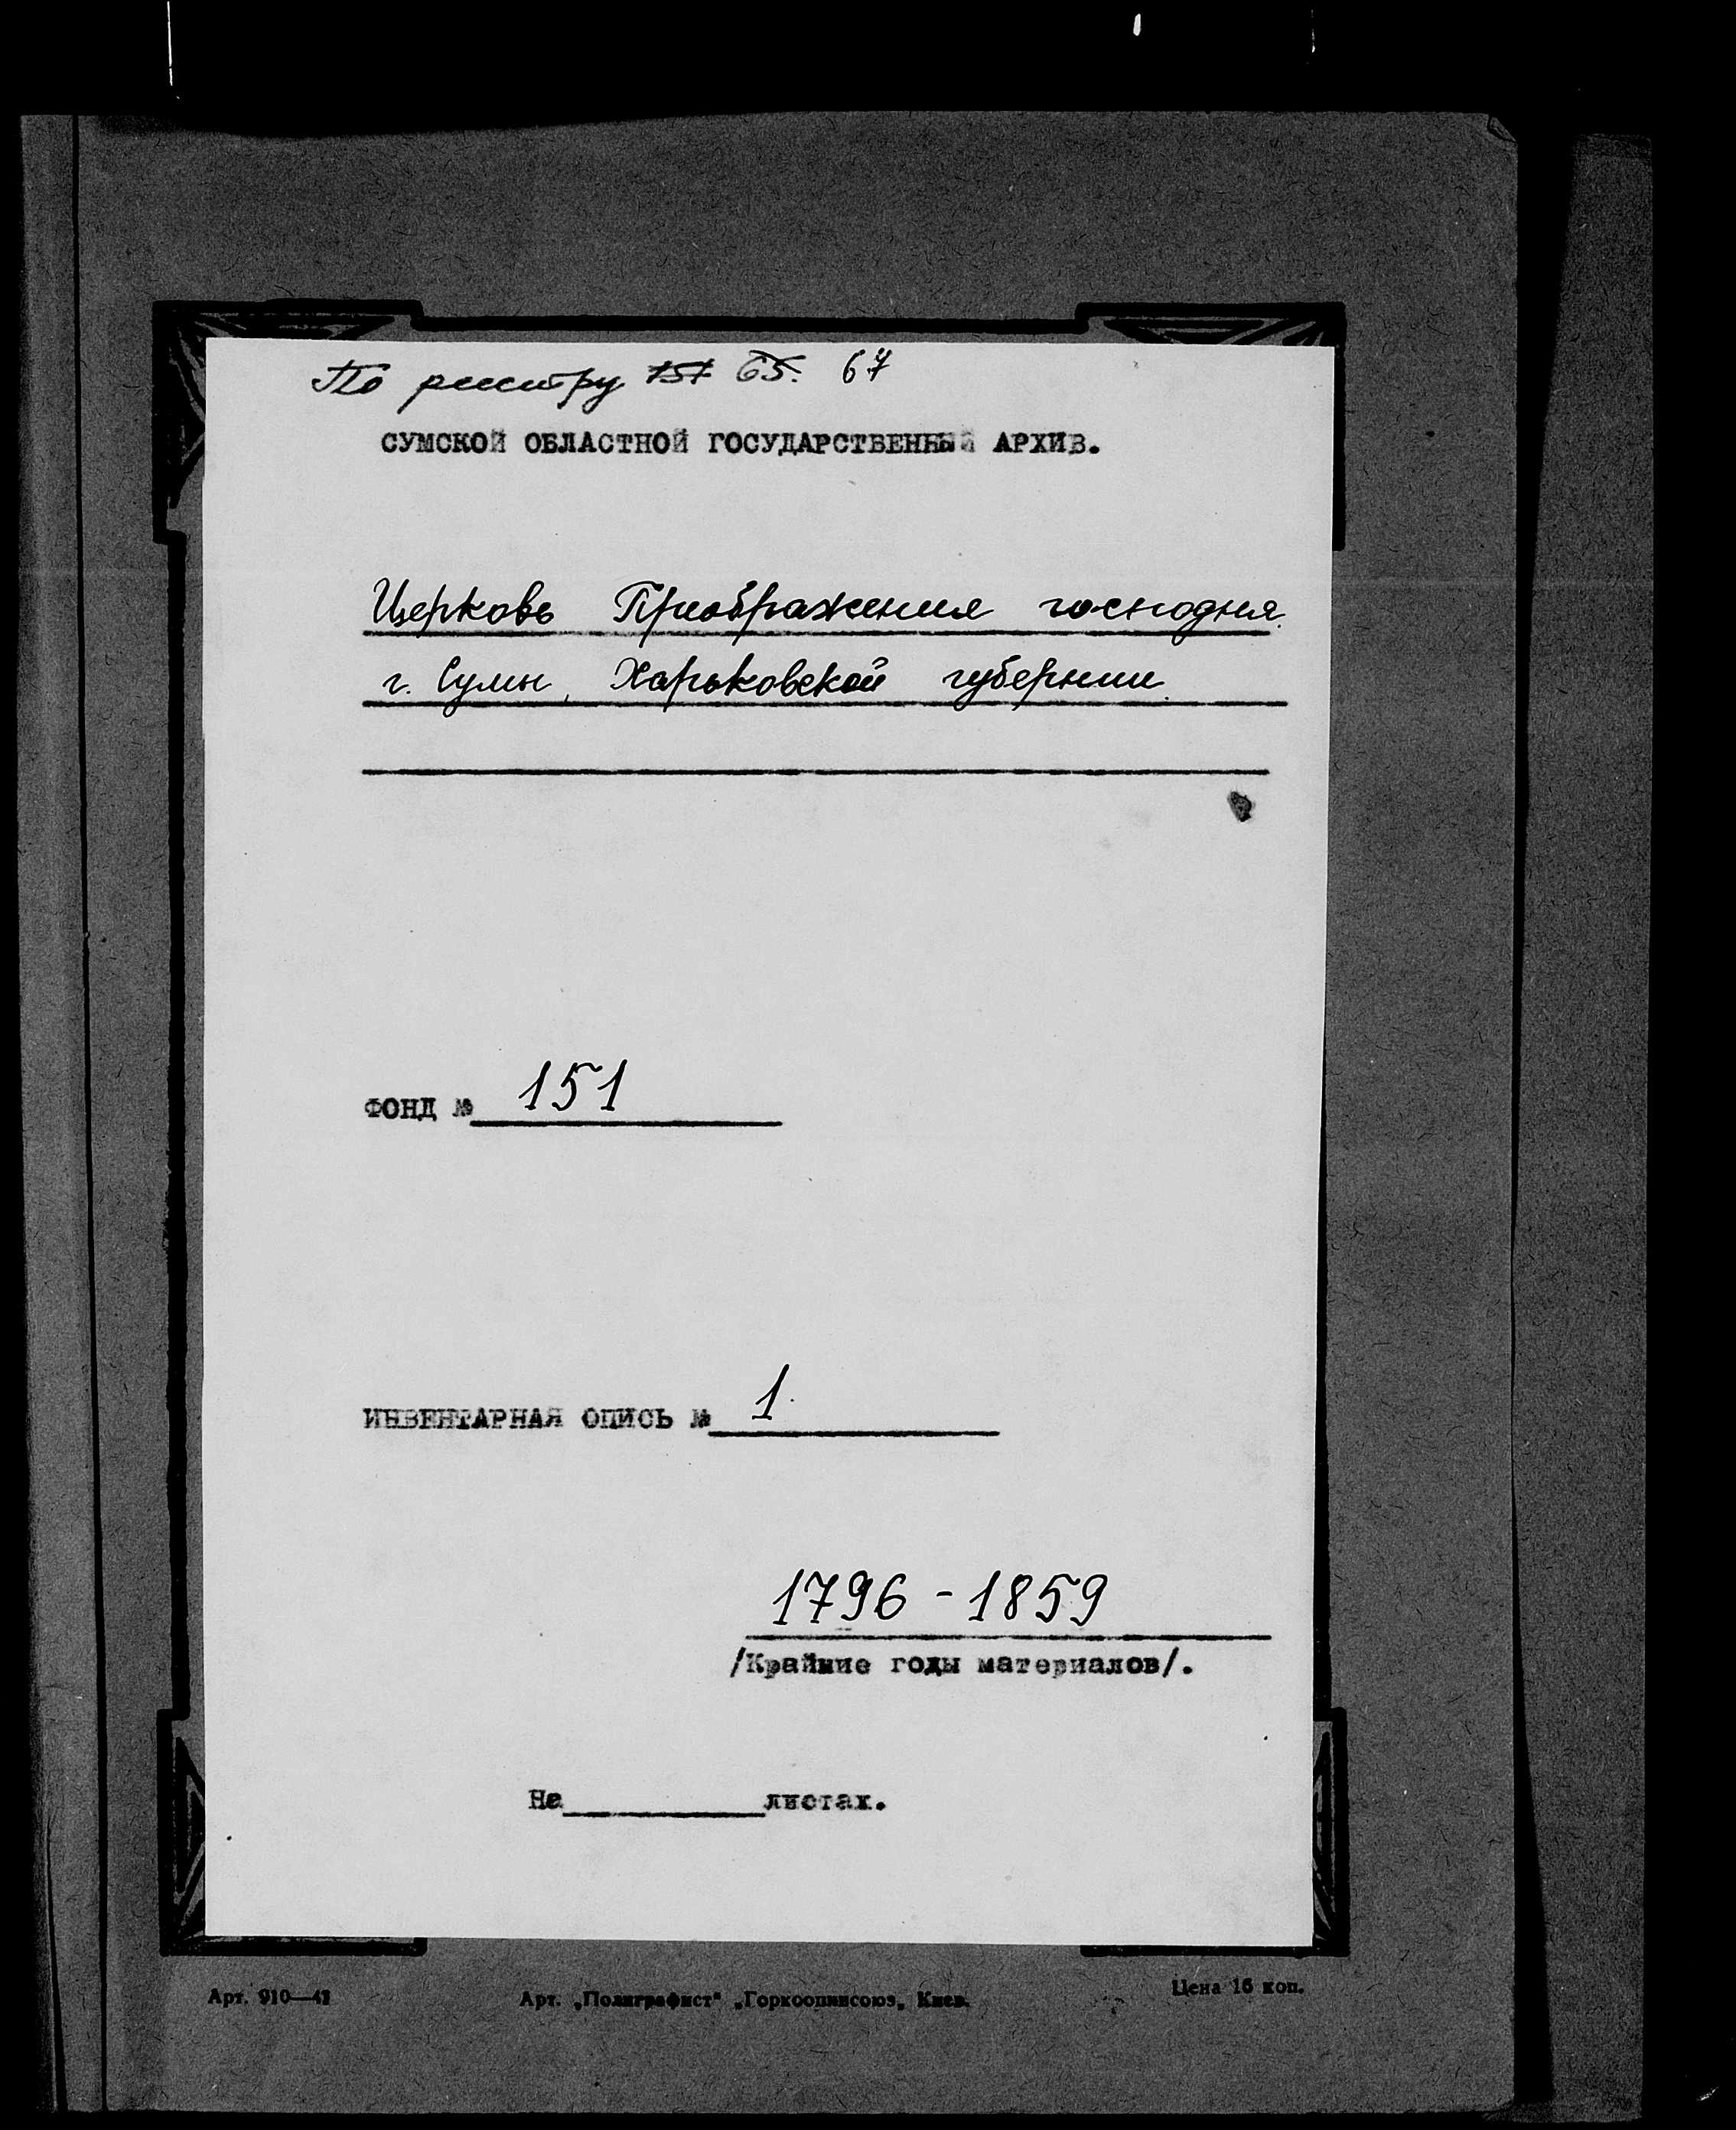 По реестру 151 65. 67
СУМСКОЙ ОБЛАСТНОЙ ГОСУДАРСТВЕННЫЙ АРХИВ.
Церковь Преображения господня.
г. Сумы, Харьковской губернии.
ФОНД № 151
ИНВЕНТАРНАЯ ОПИСЬ № 1.
1796 - 1859
/Крайние годы материалов/.
На листах.
Арт. 910—41 Арт. „Полиграфист“ „Горкоопинсоюз„ Киев. Цена 16 коп.